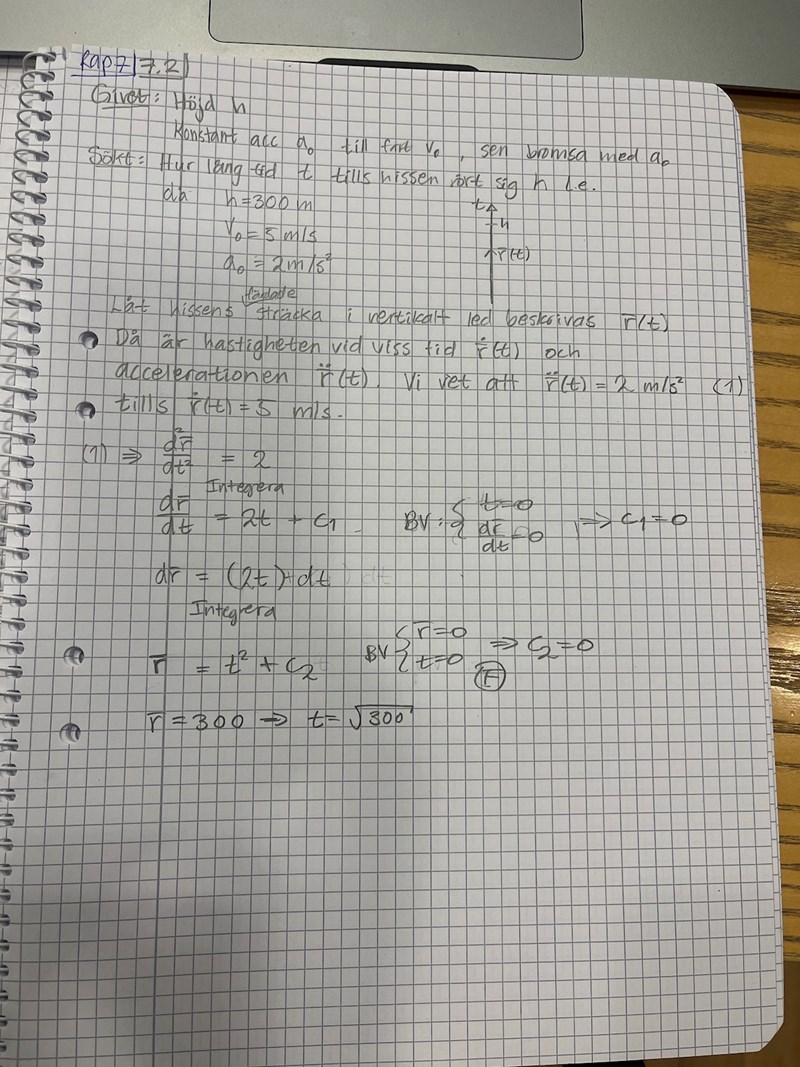 Kap7 7.2
Givet: Höjd h
Konstant acc a₀ till fart v₀, sen bromsa med a₀
Sökt: Hur lång tid t tills hissen rört sig h l.e.
då h=300 m
V₀=5 m/s
a₀=2m/s²
t
h
r̄(t)
Låt hissens färdade sträcka i vertikalt led beskrivas r̄(t)
Då är hastigheten vid viss tid ṙ(t) och
accelerationen r̈(t). Vi vet att r̈(t) = 2 m/s² (1)
tills ṙ(t) = 5 m/s.
(1) ⇒ d²r̄/dt² = 2
Integrera
dr̄/dt = 2t + C₁ BV: { t=0 dr̄/dt=0 ⇒ C₁=0
dr̄ = (2t) dt
Integrera
r̄ = t² + C₂ BV { r̄=0 t=0 ⇒ C₂=0
r̄ = 300 → t = √300